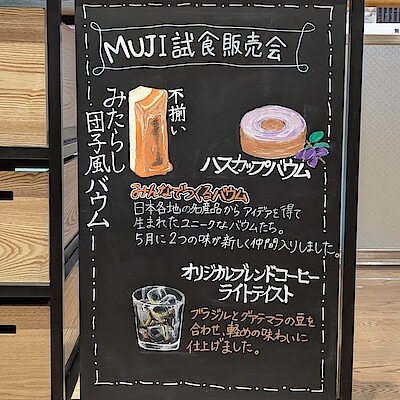 MUJI試食販売会
不揃い
みたらし
団子風バウム
ハスカップバウム
みんなでつくるバウム
日本各地の名産品からアイデアを得て
生まれたユニークなバウムたち。
5月に2つの味が新しく仲間入りしました。
オリジナルブレンドコーヒー
ライトテイスト
ブラジルとグァテマラの豆を
合わせ、軽めの味わいに
仕上げました。